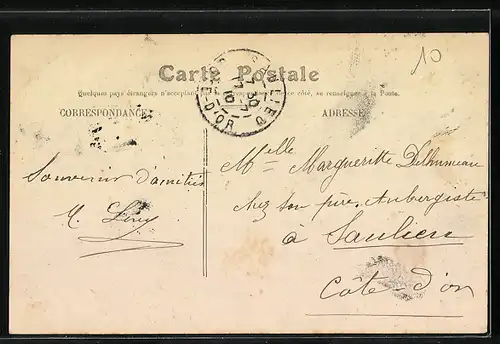 10
Carte Postale
Quelques pays étrangers n'acceptent pas ce côté, se renseigner à la Poste.
CORRESPONDANCE
ADRESSE
SAULIEU
COTE-D'OR
Souvenir d'amitié
Melle Marguerite
chez son père Aubergiste
à Saulieu
Côte-d'or